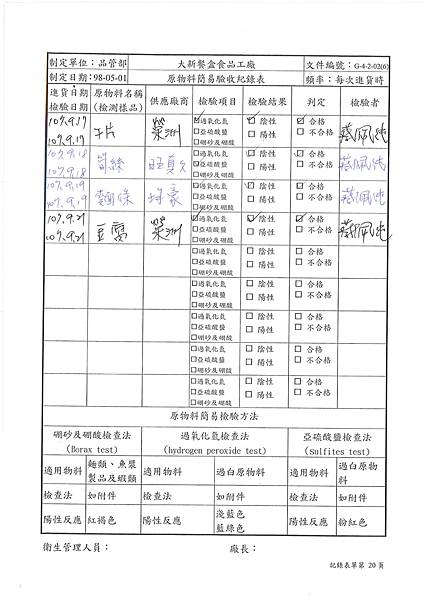 制定單位：品管部 大新餐盒食品工廠 文件編號：G-4-2-02(6)
制定日期：98-05-01 原物料簡易驗收紀錄表 頻率：每次進貨時
進貨日期 原物料名稱 供應廠商 檢驗項目 檢驗結果 判定 檢驗者
檢驗日期 (檢測樣品)
107.9.17 ☑過氧化氫 ☑陰性 ☑合格
107.9.17 干片 榮洲 □亞硫酸鹽 □陽性 □不合格 蔡佩純
□硼砂及硼酸
107.9.18 ☑過氧化氫 ☑陰性 ☑合格
107.9.18 □亞硫酸鹽 □陽性 □不合格 蔡佩純
□硼砂及硼酸
107.9.19 ☑過氧化氫 ☑陰性 ☑合格
107.9.19 □亞硫酸鹽 □陽性 □不合格 蔡佩純
□硼砂及硼酸
107.9.21 ☑過氧化氫 ☑陰性 ☑合格
107.9.21 豆腐 榮洲 □亞硫酸鹽 □陽性 □不合格 蔡佩純
□硼砂及硼酸
□過氧化氫 □陰性 □合格
□亞硫酸鹽 □陽性 □不合格
□硼砂及硼酸
□過氧化氫 □陰性 □合格
□亞硫酸鹽 □陽性 □不合格
□硼砂及硼酸
□過氧化氫 □陰性 □合格
□亞硫酸鹽 □陽性 □不合格
□硼砂及硼酸
□過氧化氫 □陰性 □合格
□亞硫酸鹽 □陽性 □不合格
□硼砂及硼酸
□過氧化氫 □陰性 □合格
□亞硫酸鹽 □陽性 □不合格
□硼砂及硼酸
原物料簡易檢驗方法
硼砂及硼酸檢查法 過氧化氫檢查法 亞硫酸鹽檢查法
(Borax test) (hydrogen peroxide test) (Sulfites test)
適用物料 麵類、魚漿製品及蝦類 適用物料 過白原物料 適用物料 過白原物料
檢查法 如附件 檢查法 如附件 檢查法 如附件
陽性反應 紅褐色 陽性反應 淺藍色 藍綠色 陽性反應 粉紅色
衛生管理人員： 廠長：
記錄表單第 20 頁